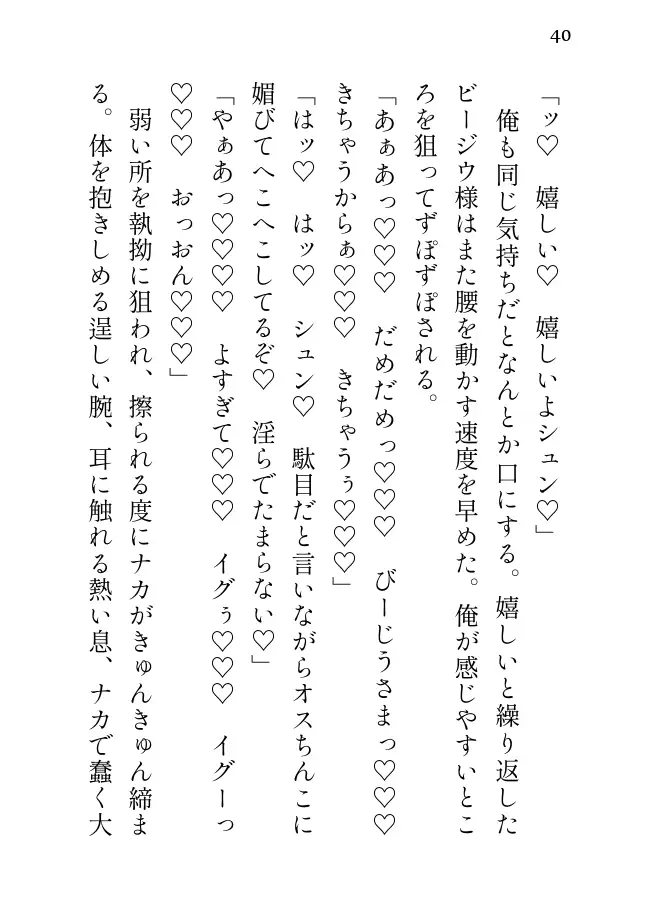 40
「ッ♡　嬉しい♡　嬉しいよシュン♡」
　俺も同じ気持ちだとなんとか口にする。嬉しいと繰り返した
ビージウ様はまた腰を動かす速度を早めた。俺が感じやすいとこ
ろを狙ってずぽずぽされる。
「あぁあっ♡♡♡　だめだめっ♡♡♡　びーじうさまっ♡♡♡
きちゃうからぁ♡♡♡　きちゃうぅ♡♡♡」
「はッ♡　はッ♡　シュン♡　駄目だと言いながらオスちんこに
媚びてへこへこしてるぞ♡　淫らでたまらない♡」
「やぁあっ♡♡♡♡　よすぎて♡♡♡　イグぅ♡♡♡　イグーっ
♡♡♡　おっおん♡♡♡」
　弱い所を執拗に狙われ、擦られる度にナカがきゅんきゅん締ま
る。体を抱きしめる逞しい腕、耳に触れる熱い息、ナカで蠢く大